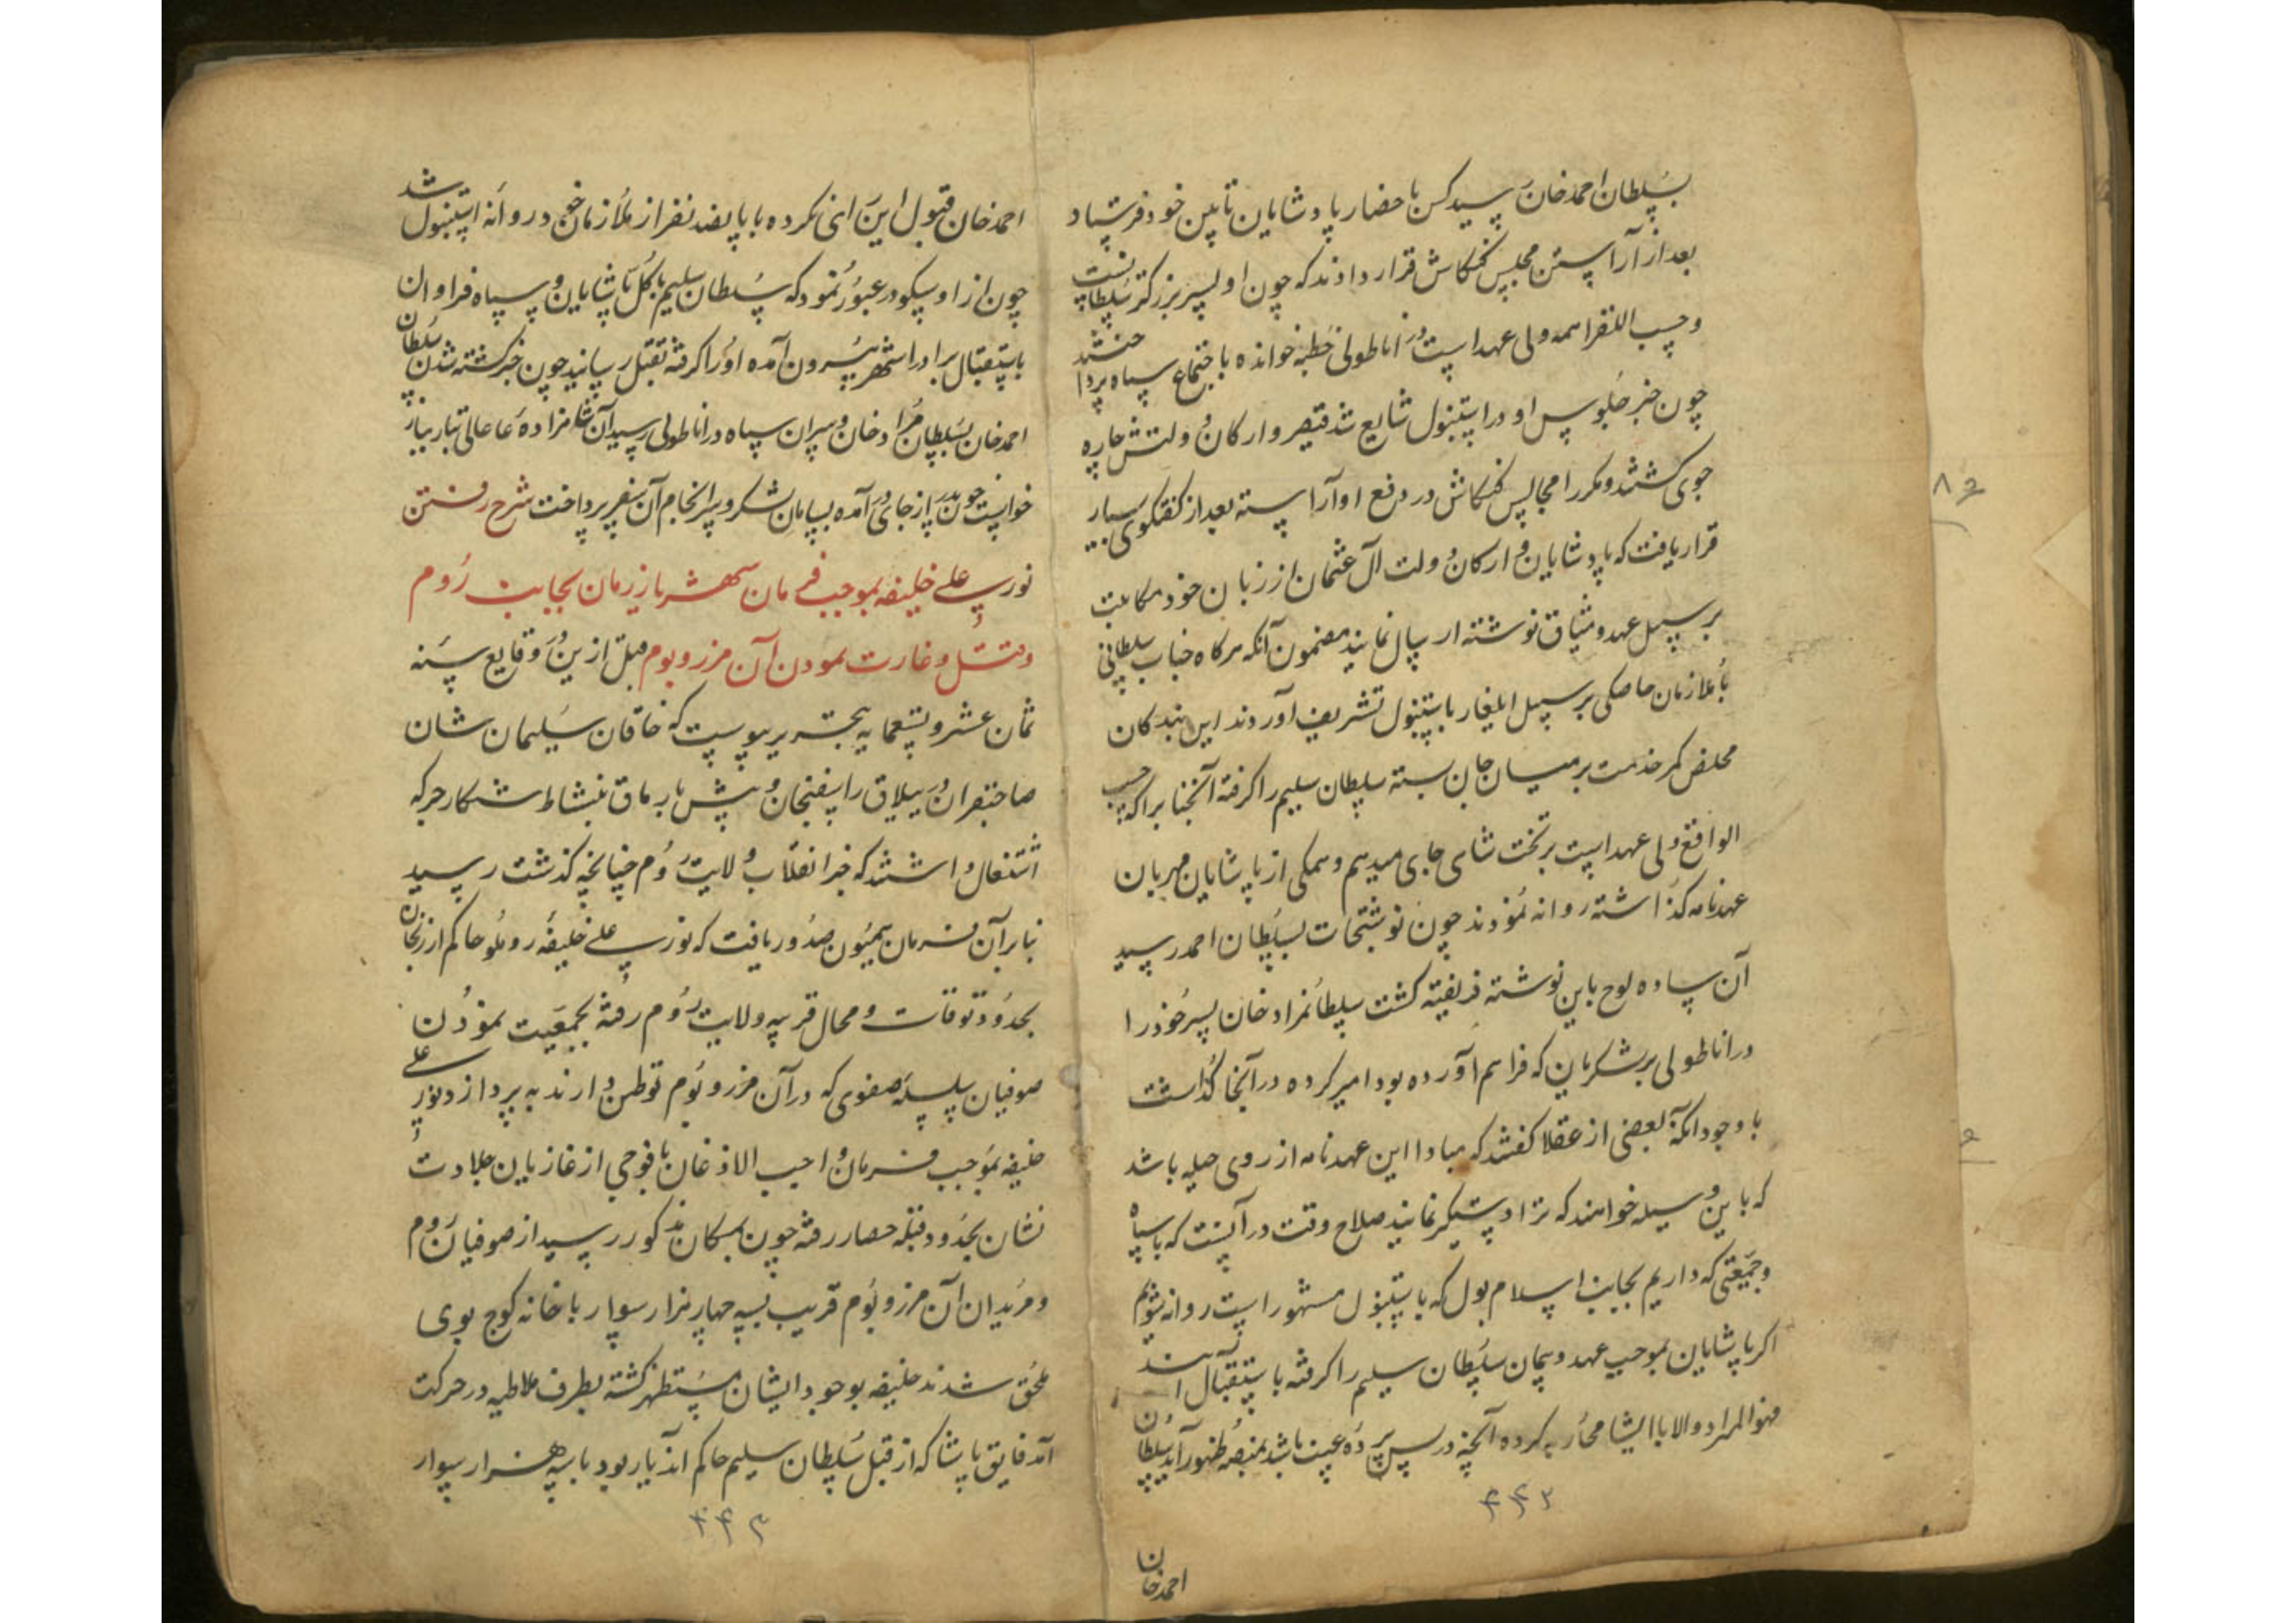 بسلطان احمد خان رسید کس باحضار پادشایان تابین خود فرستاد
بعد از آراستن مجلس کنکاش قرار دادند که چون او پسر بزرکتر سلطانست
و حسب النقرا همه ولی عهد است در اناطولی خطبه خوانده باجتماع سپاه پرداختند
چون خبر جلوس او در استنبول شایع شد قیصر و ارکان دولتش چاره
جوی کشتند و مکررا مجالس کنکاش در دفع او آراسته بعد از کفتکوی بسیار
قرار یافت که پادشایان و ارکان دولت آل عثمان از زبان خود مکاتبت
بر سبیل عهد و میثاق نوشته ارسال نمایند مضمون آنکه هرکاه جناب سلطانی
با ملازمان خاصکی بر سبیل ایلغار باستنبول تشریف آوردند این بندکان
مخلص کمر خدمت بر میان جان بسته سلطان سلیم را کرفته آنجناب را که بحسب
الواقع ولی عهد است بر تخت شاهی جای میدهیم و همکی از پاشایان مهربان
عهدنامه کذاشته روانه نمودند چون نوشتجات بسلطان احمد رسید
آن ساده لوح باین نوشته فریفته کشت سلطان مراد خان پسر خود را
در اناطولی بر لشکریان که فراهم آورده بود امیر کرده در آنجا کذاشت
با وجود آنکه بعضی از عقلا کفتند که مبادا این عهدنامه از روی حیله باشد
که باین وسیله خواهند که ترا دستکیر نمایند صلاح وقت در آنست که با سپاه
و جمعیتی که داریم بجانب اسلام بول که باستنبول مشهور است روانه شویم
اکر پاشایان بموجب عهد و پیمان سلطان سلیم را کرفته باستقبال آیند
فهو المراد والا با ایشان محاربه کرده آنچه در پس پرده غیب باشد بمنصه ظهور آید سلطان
۴۴۳
احمد خان
احمد خان قبول این رای نکرده با پانصد نفر از ملازمان خود روانه استنبول شد
چون از اوسکودر عبور نمود که سلطان سلیم با کل پاشایان و سپاه فراوان
باستقبال برادر از شهر بیرون آمده او را کرفته بقتل رسانید چون خبر کشته شدن سلطان
احمد خان بسلطان مراد خان و سران سپاه در اناطولی رسید آن شاهزاده عالی تبار
خواست چون پدر از جای در آمده بسامان لشکر و سرانجام آن سفر پرداخت شرح رفتن
نور علی خلیفه بموجب فرمان شهریار زمان بجانب روم
و قتل و غارت نمودن آن مرز و بوم قبل ازین در وقایع سنه
ثمان عشر و تسعمایه بتحریر پیوست که خاقان سلیمان شان
صاحبقران در ییلاق راسفنجان و پیش بارماق بنشاط شکار جرکه
اشتغال داشتند که خبر انقلاب ولایت روم چنانچه کذشت رسید
بنابر آن فرمان همیون صدور یافت که نور علی خلیفه روملو حاکم ارزنجان
بحدود توقات و محال قریبه ولایت روم رفته بجمعیت نمودن
صوفیان سلسله صفوی که در آن مرز و بوم توطن دارند به پردازد نور علی
خلیفه بموجب فرمان واجب الاذعان با فوجی از غازیان جلادت
نشان بحدود قبله حصار رفته چون بمکان مذکور رسید از صوفیان روم
و مریدان آن مرز و بوم قریب بسه چهار هزار سوار با خانه کوچ بوی
ملحق شدند خلیفه بوجود ایشان مستظهر کشته بطرف ملاطیه در حرکت
آمد فایق پاشا که از قبل سلطان سلیم حاکم اندیار بود با سه هزار سوار
۴۴۴